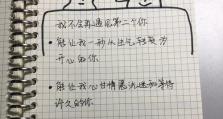 我不会再遇见第二个你
• 能让我一秒从生气转变为
开心的你
• 能让我心甘情愿沉迷和等待
许久的你